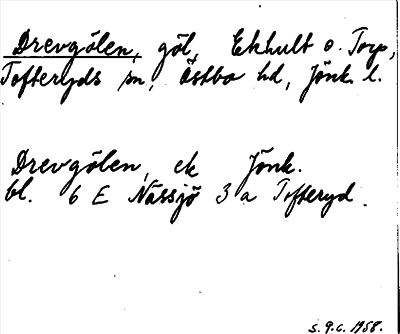 Drevgölen, göl, Ekhult o. Torp,
Tofteryds sn, Östbo hd, Jönk. l.
Drevgölen, ek Jönk.
bl. 6 E Nässjö 3 a Tofteryd.
S.g.c. 1958.